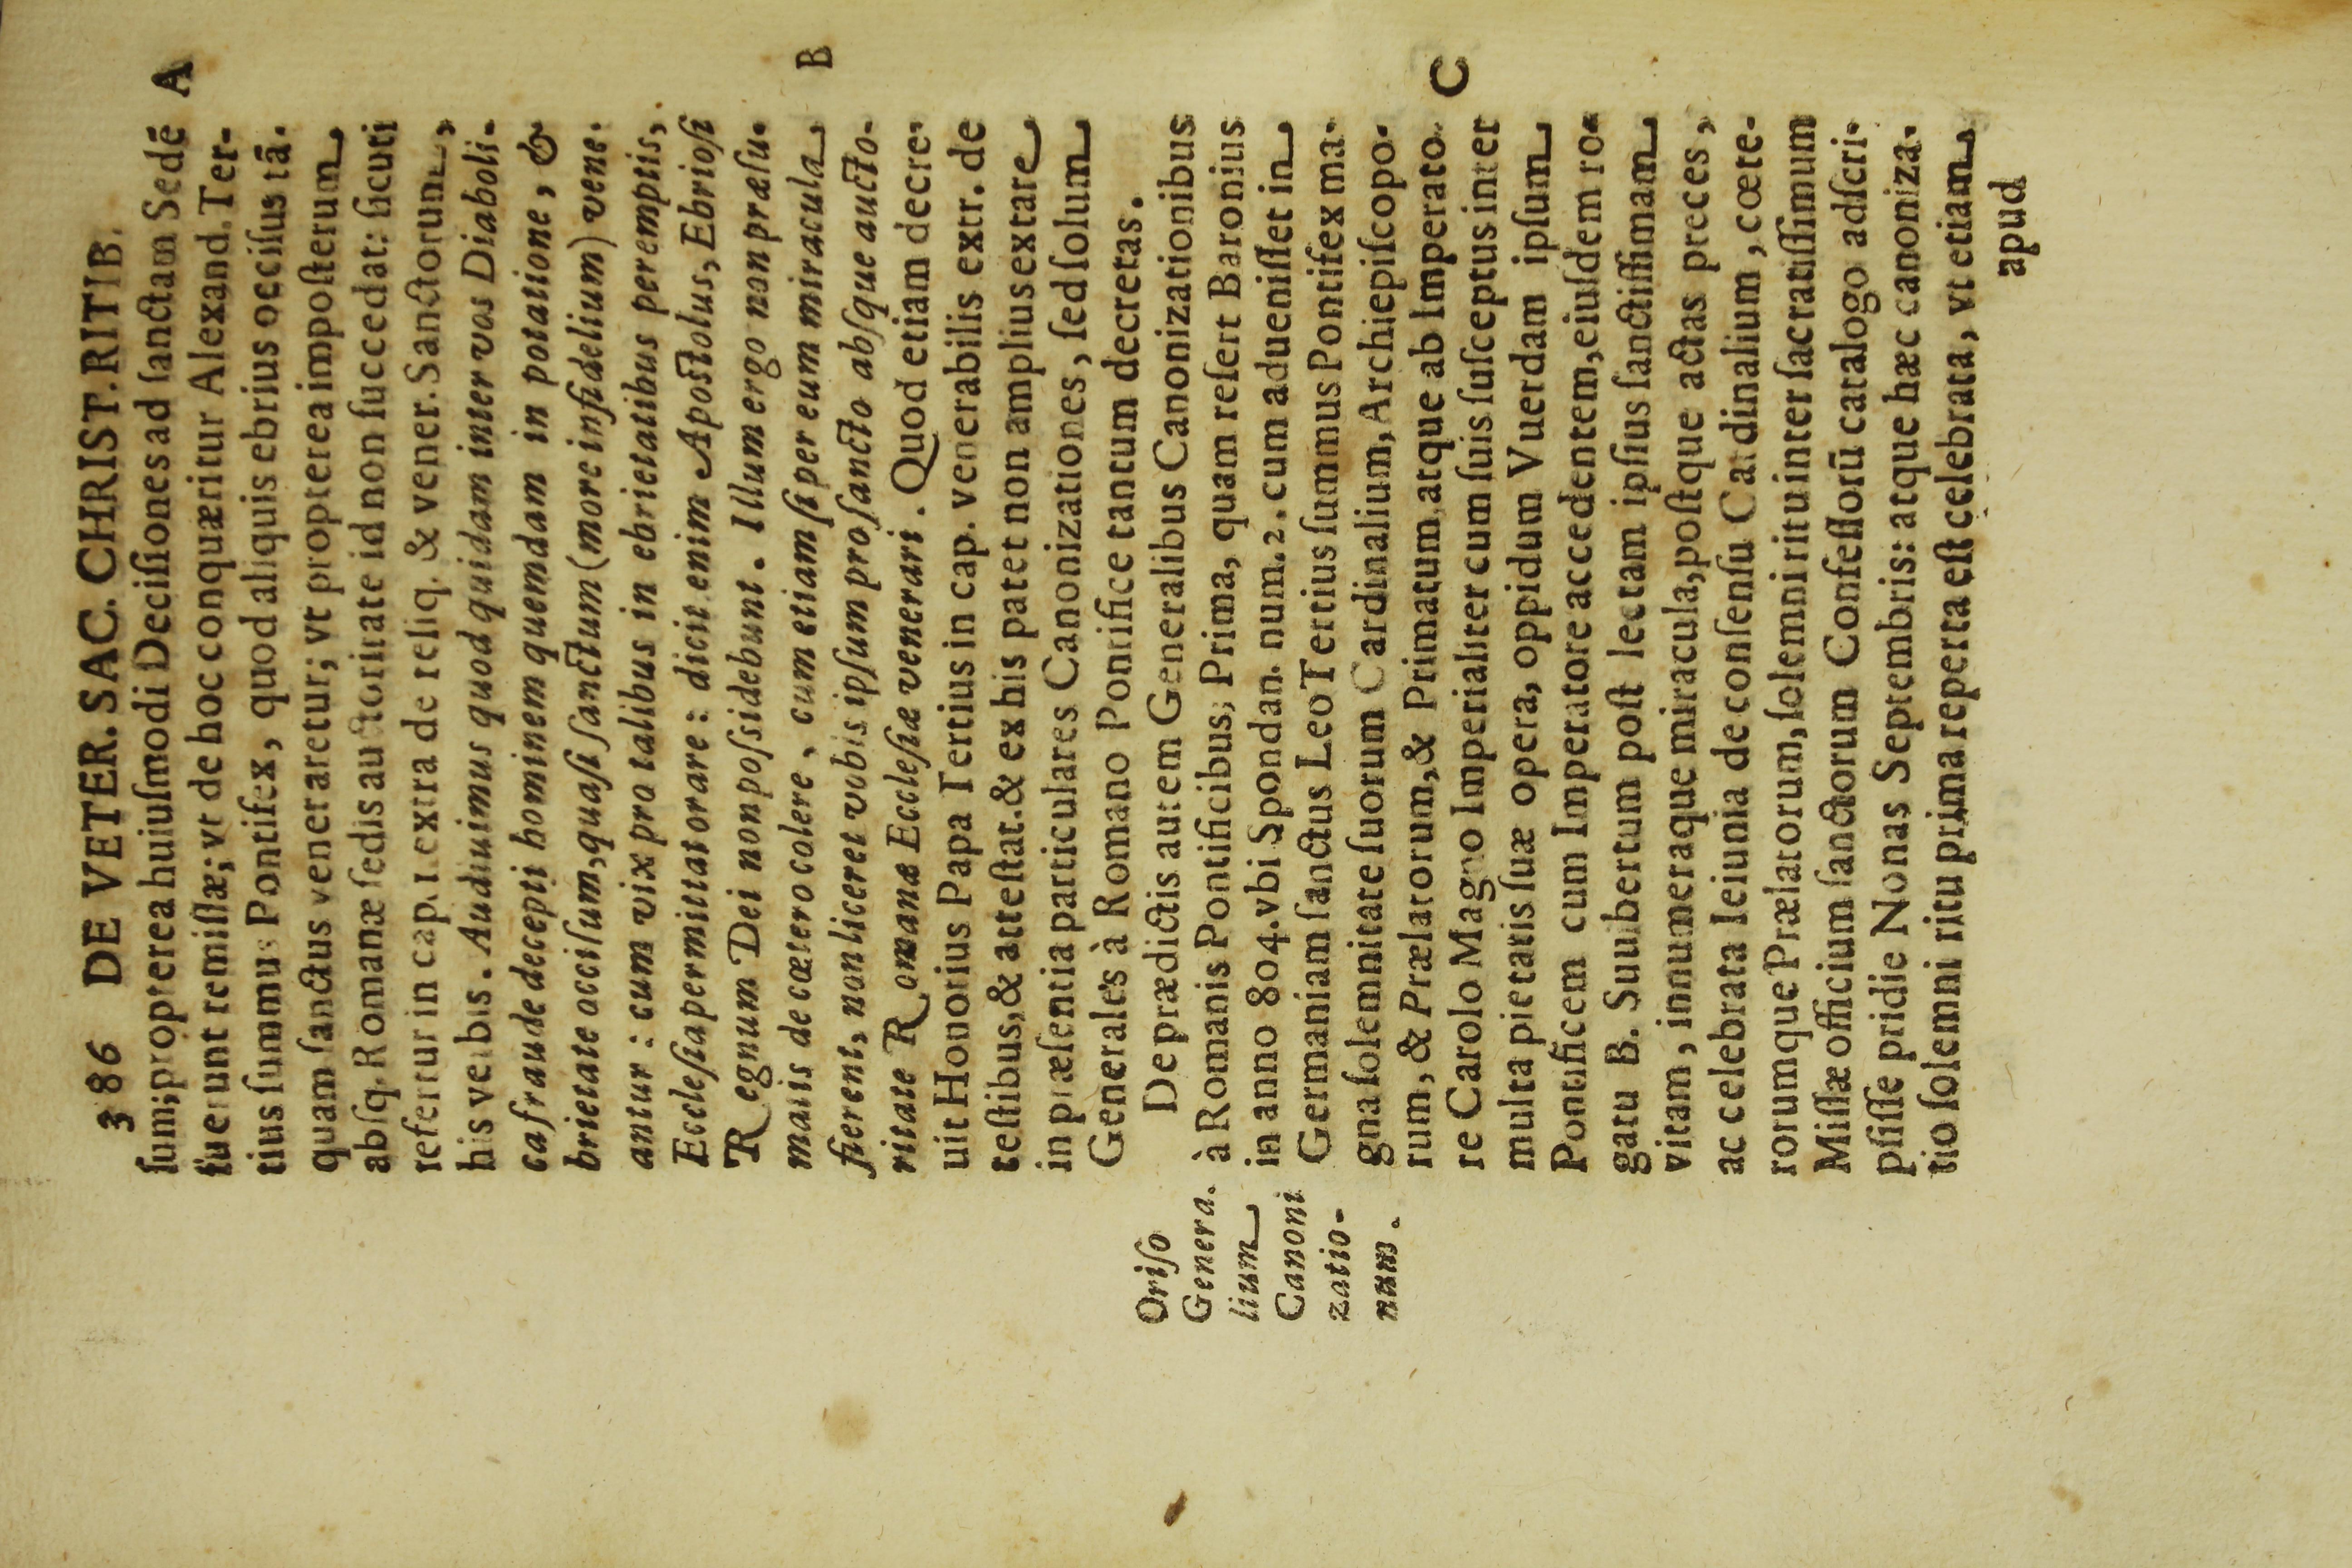 386 DE VETER. SAC. CHRIST. RITIB.
ſum; propterea huiuſmodi Deciſiones ad ſanctam Sedē A
fuerunt remiſſæ; vt de hoc conquæritur Alexand. Ter-
tius ſummus Pontifex, quod aliquis ebrius occiſus tã-
quam ſanctus veneraretur; vt propterea impoſterum
abſq. Romanæ ſedis auctoritate id non ſuccedat: ſicuti
refertur in cap. 1. extra de reliq. & vener. Sanctorum,
his verbis. Audiuimus quod quidam inter vos Diaboli-
ca fraude decepti hominem quemdam in potatione, &
brietate occiſum, quaſi ſanctum (more infidelium) vene-
antur: cum vix pro talibus in ebrietatibus peremptis,
Eccleſia permittat orare: dicit enim Apoſtolus, Ebrioſi
Regnum Dei non poſsidebunt. Illum ergo non præſu-
matis de cætero colere, cum etiam ſi per eum miracula B
fierent, non liceret vobis ipſum pro ſancto abſque aucto-
ritate Romanæ Eccleſiæ venerari. Quod etiam decre-
uit Honorius Papa Tertius in cap. venerabilis extr. de
teſtibus, & atteſtat. & ex his patet non amplius extare
in præſentia particulares Canonizationes, ſed ſolum
Generales à Romano Pontifice tantum decretas.
De prædictis autem Generalibus Canonizationibus
à Romanis Pontificibus; Prima, quam refert Baronius
in anno 804. vbi Spondan. num. 2. cum adueniſſet in
Germaniam ſanctus Leo Tertius ſummus Pontifex ma-
gna ſolemnitate ſuorum Cardinalium, Archiepiſcopo-
rum, & Prælatorum, & Primatum, atque ab Imperato- C
re Carolo Magno Imperialiter cum ſuis ſuſceptus inter
multa pietatis ſuæ opera, oppidum Vuerdam ipſum
Pontificem cum Imperatore accedentem, eiuſdem ro-
gatu B. Suuibertum poſt lectam ipſius ſanctiſſimam
vitam, innumeraque miracula, poſtque actas preces,
ac celebrata Ieiunia de conſenſu Cardinalium, cœte-
rorumque Prælatorum, ſolemni ritu inter ſacratiſſimum
Miſſæ officium ſanctorum Confeſſorũ catalogo adſcri-
pſiſſe pridie Nonas Septembris: atque hæc canoniza-
tio ſolemni ritu prima reperta eſt celebrata, vt etiam
apud
Oriſo
Genera-
lium
Canoni
zatio-
num.